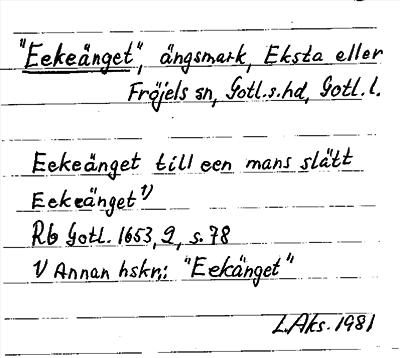 "Eekeänget", ängsmark, Eksta eller
Fröjels sn, Gotl.s.hd, Gotl.l.
Eekeänget till een mans slätt
Eekeänget 1)
Rb Gotl. 1653, 2, s. 78
1) Annan hskr.: "Eekänget"
L.Aks. 1981